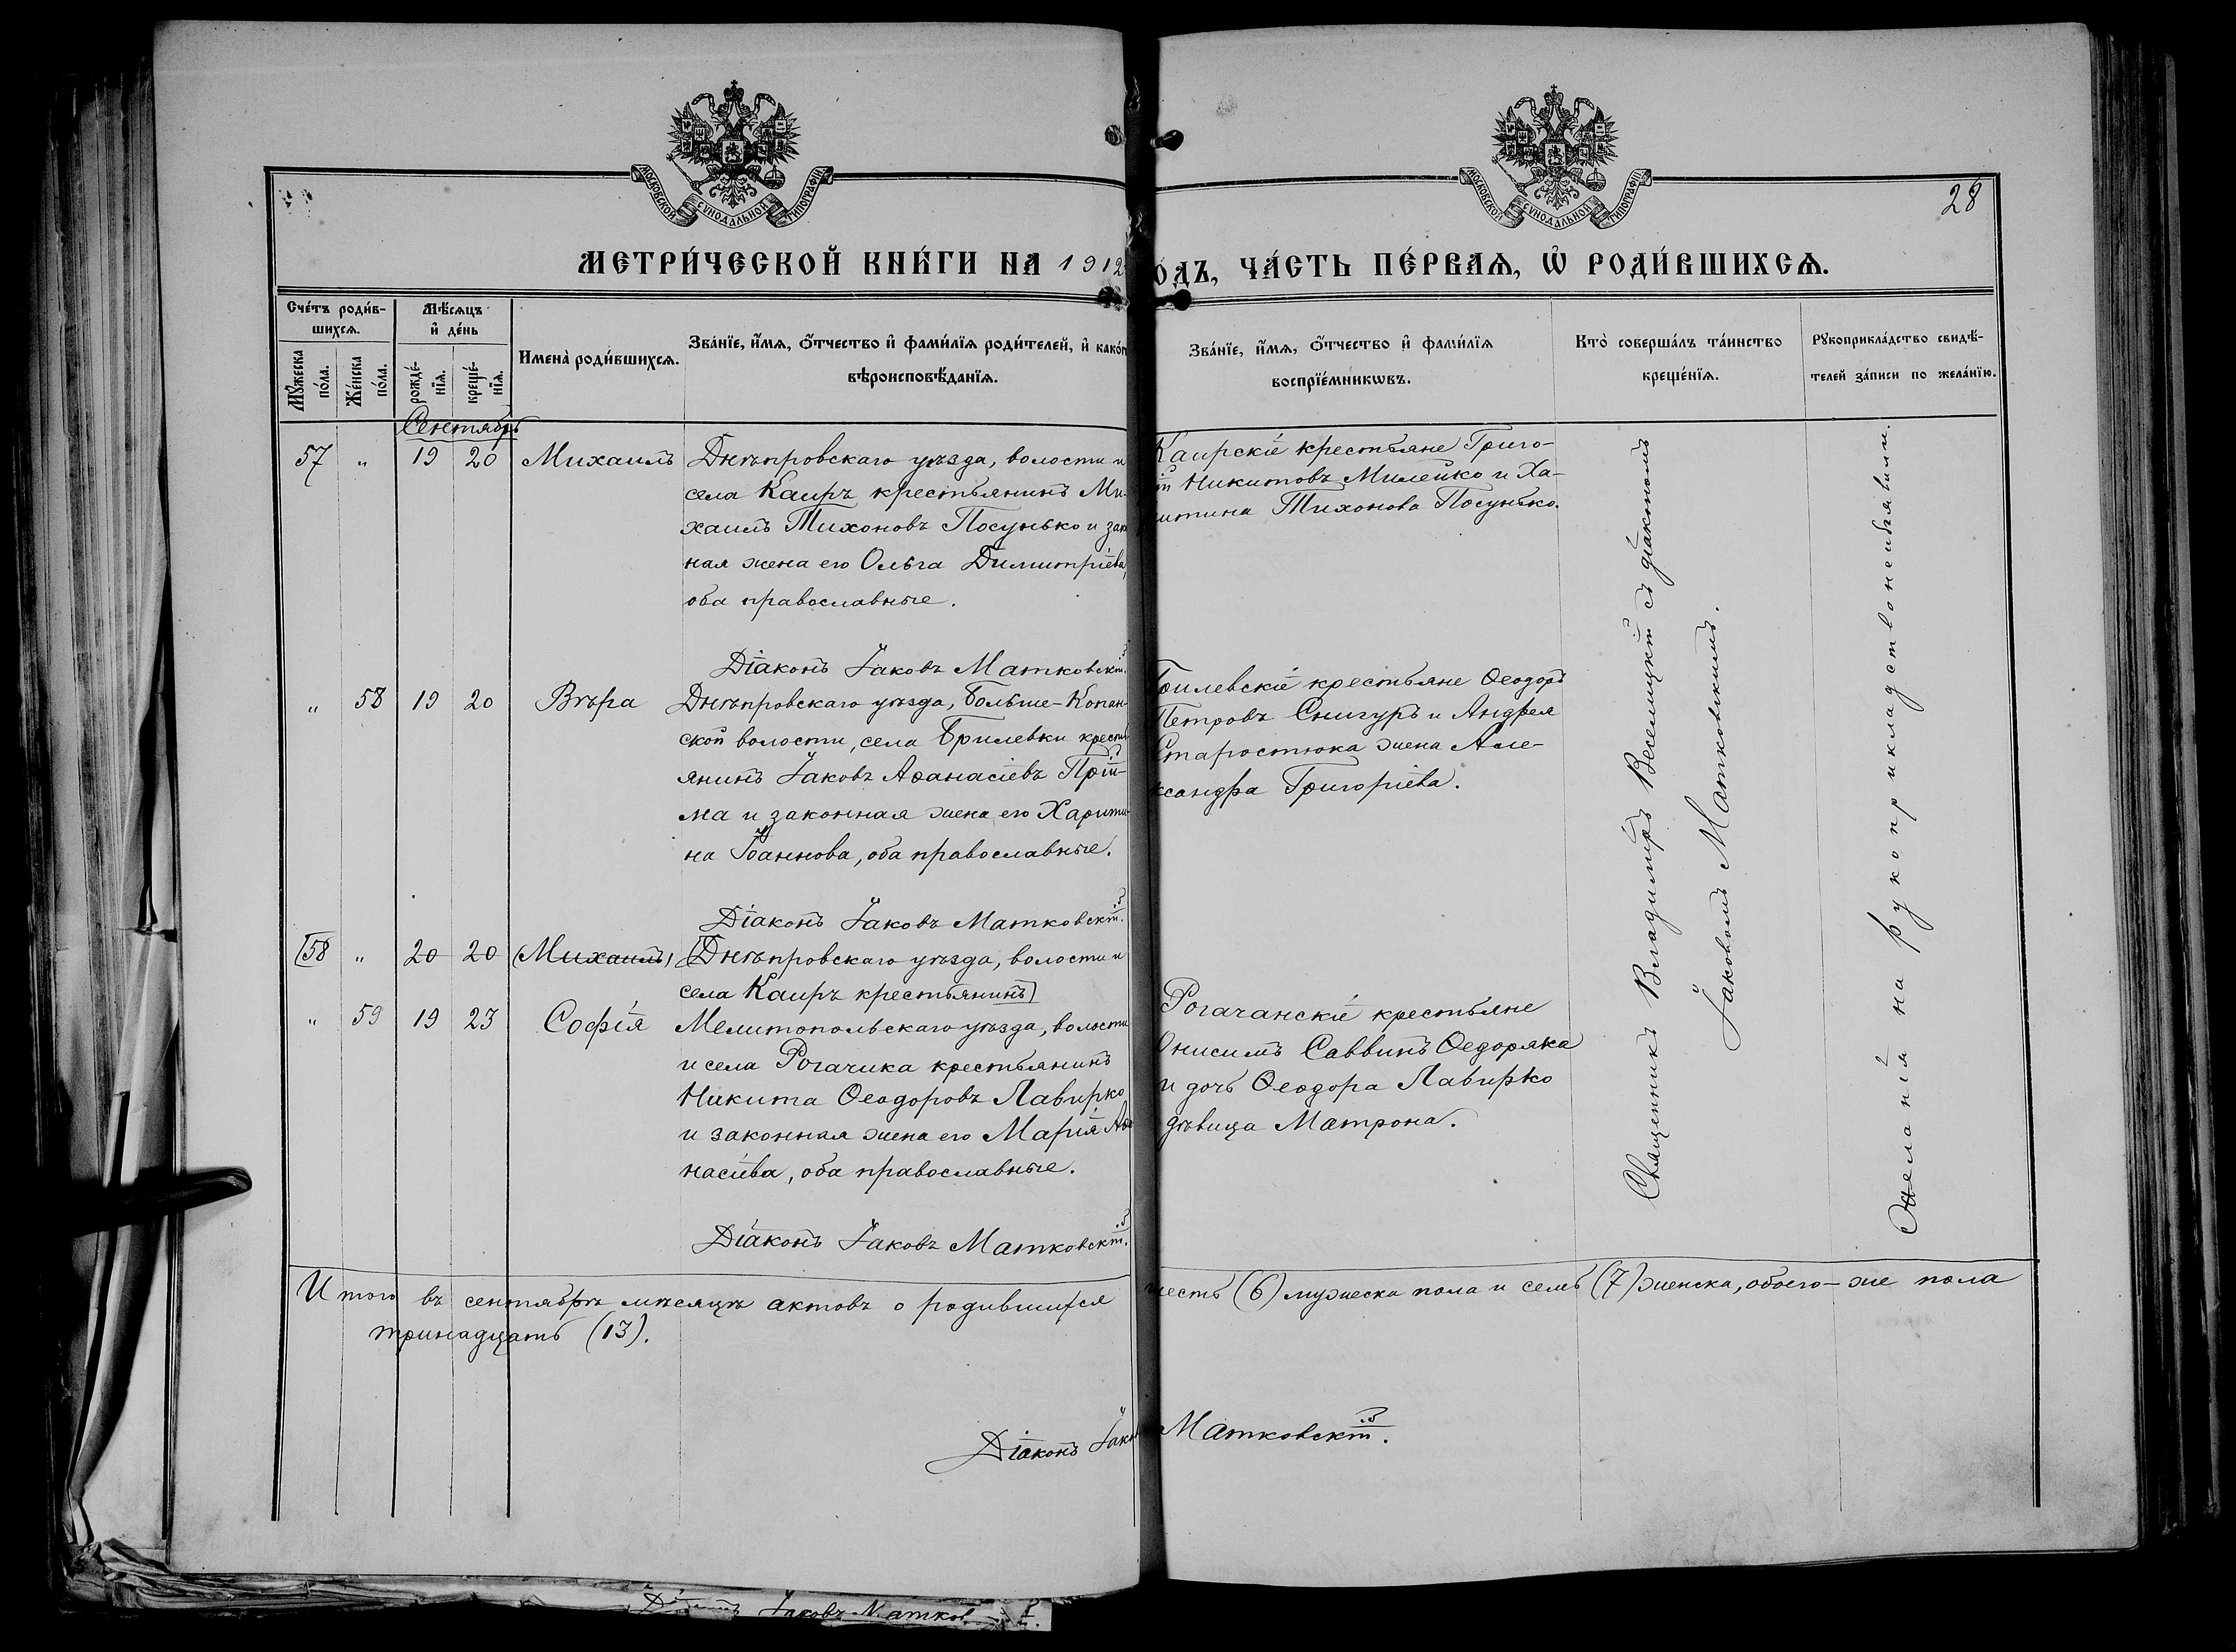 МОСКОВСКОЙ СУНОДАЛЬНОЙ ТИПОГРАФІИ
МОСКОВСКОЙ СУНОДАЛЬНОЙ ТИПОГРАФІИ
28
МЕТРИ́ЧЕСКОЙ КНИ́ГИ НА 1912
О́ДЪ, ЧА́СТЬ ПЕ́РВАѦ, Ѡ҆ РОДИ́ВШИХСѦ.
Сче́тъ роди́в-
шихсѧ.
Мꙋ́жеска по́ла.
Же́нска по́ла.
Мѣ́сѧцъ
и҆ де́нь
рожде́-
нїѧ.
креще́-
нїѧ.
Имена̀ роди́вшихсѧ.
Зва́нїе, и҆́мѧ, ѻ҆́тчество и҆ фами́лїѧ роди́телей, и҆ како́г
вѣроисповѣ́данїѧ.
Зва́нїе, и҆́мѧ, ѻ҆́тчество и҆ фами́лїѧ
воспрїе́мникѡвъ.
Кто̀ соверша́лъ та́инство
креще́нїѧ.
Рꙋкоприкла́дство свидѣ́-
телей за́писи по жела́нїю.
Сентябрь
57 „ 19 20 Михаилъ Днѣпровскаго уѣзда, волости и
села Каиръ крестьянинъ Ми-
хаилъ Тихоновъ Посунько и зак
ная жена его Ольга Димитріева,
оба православные.
Діаконъ Іаковъ Матковскій.
Каирскіе крестьяне Григо-
ій Никитовъ Милейко и Ха-
итина Тихонова Посунько.
„ 58 19 20 Вѣра Днѣпровскаго уѣзда, Больше-Копан-
ской волости, села Брилевки кресть
янинъ Іаковъ Аѳанасіевъ Прій-
ма и законная жена его Харити-
на Іоаннова, оба православные.
Діаконъ Іаковъ Матковскій.
рилевскіе крестьяне Ѳеодоръ
Петровъ Снигуръ и Андрея
Старостюка жена Але-
ксандра Григоріева.
(58 „ 20 20 (Михаилъ) (Днѣпровскаго уѣзда, волости и
села Каиръ крестьянинъ)
„ 59 19 23 Софія Мелитопольскаго уѣзда, волости
и села Рогачика крестьянинъ
Никита Ѳеодоровъ Лавирко
и законная жена его Марія Аѳа
насіева, оба православные.
Діаконъ Іаковъ Матковскій.
Рогачанскіе крестьяне
Онисимъ Саввинъ Ѳедоряка
и дочь Ѳеодора Лавирко
дѣвица Матрона.
Священникъ Владиміръ Веселицкій съ діакономъ
Іаковомъ Матковскимъ.
Желанія на рукоприкладство не изъявили.
Итого въ сентябрѣ мѣсяцѣ актовъ о родившихся
шесть (6) мужеска пола и семь (7) женска, обоего-же пола
тринадцать (13).
Діаконъ Іаков
Матковскій.
Іаковъ Матков